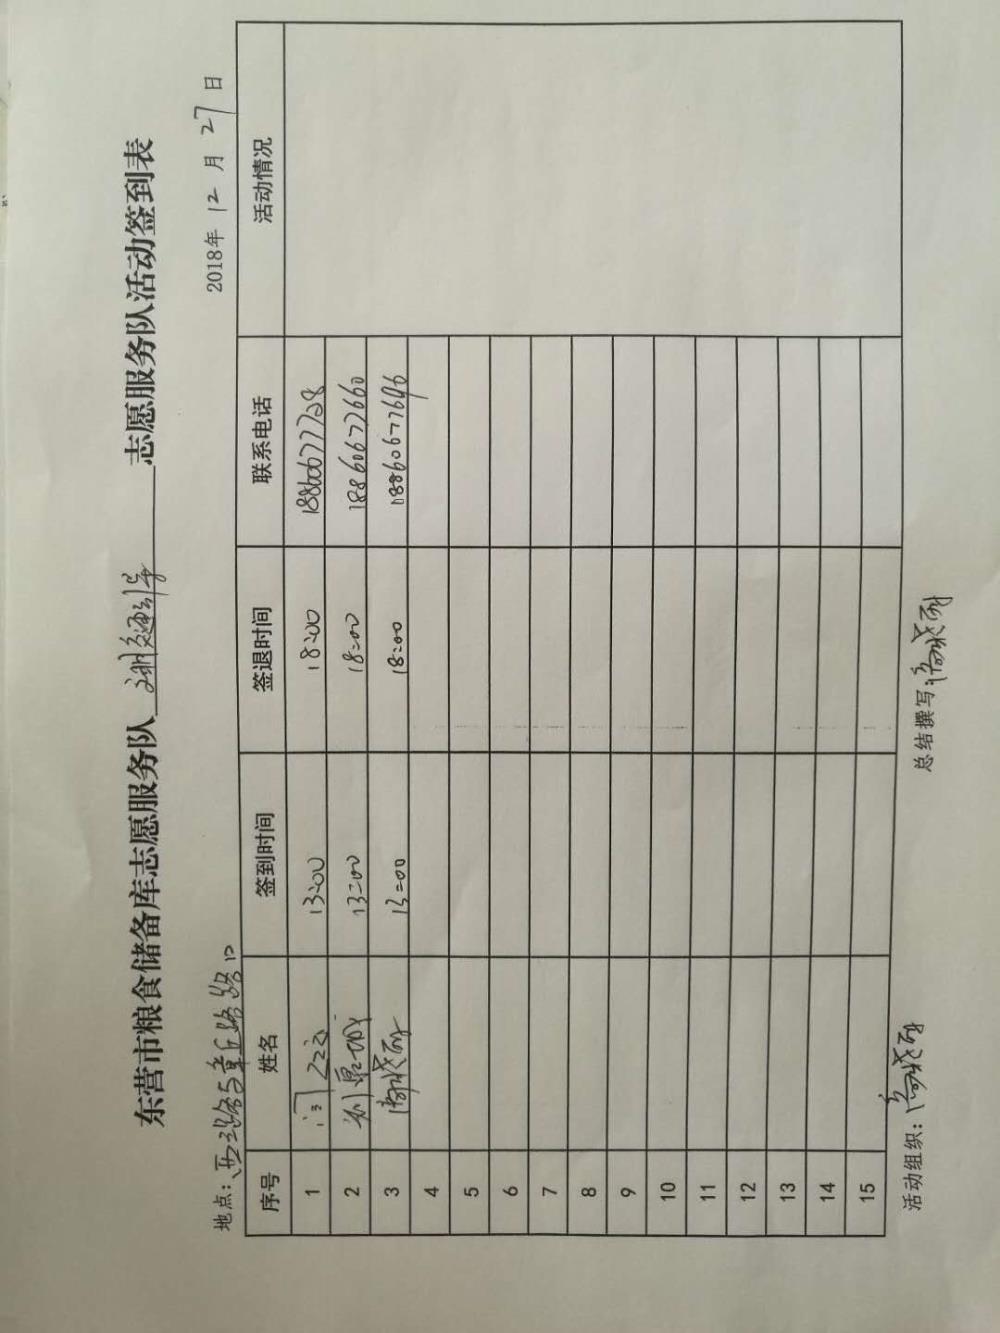 东营市粮食储备库志愿服务队 志愿服务队活动签到表
地点: 2018年 12 月 27 日
序号 姓名 签到时间 签退时间 联系电话 活动情况
1 13:00 18:00 18860677728
2 13:00 18:00 18860677660
3 13:00 18:00 18860677696
4
5
6
7
8
9
10
11
12
13
14
15
活动组织: 总结撰写: